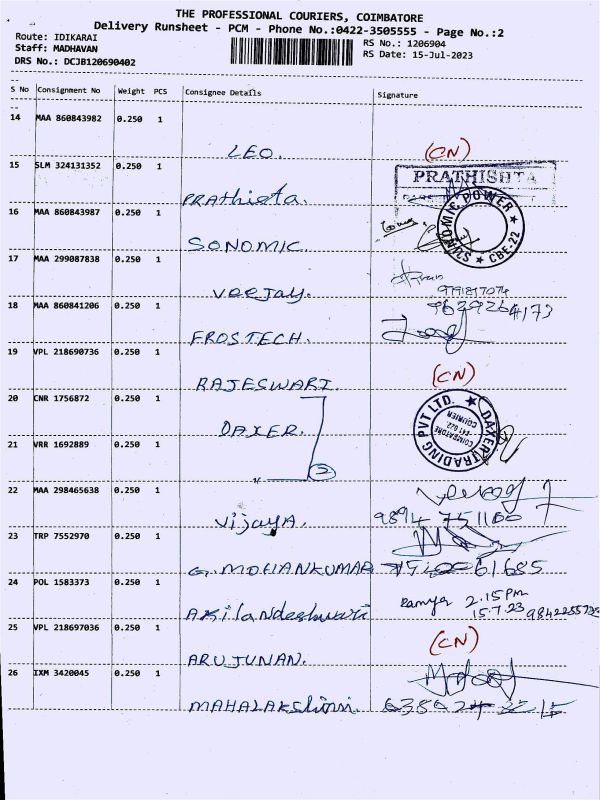 THE PROFESSIONAL COURIERS, COIMBATORE
Delivery Runsheet - PCM - Phone No.:0422-3505555 - Page No.:2
Route: IDIKARAI RS No.: 1206904
Staff: MADHAVAN RS Date: 15-Jul-2023
DRS No.: DCJB120690402
S No Consignment No Weight PCS Consignee Details Signature
14 MAA 860843982 0.250 1
LEO. (CN)
15 SLM 324131352 0.250 1
PRATHISHTA
PRAthista.
16 MAA 860843987 0.250 1
SONOMIC POWER ★ CBE-22 ★
SONOMIC
17 MAA 299087838 0.250 1
veejay.
18 MAA 860841206 0.250 1
FROSTECH.
19 VPL 218690736 0.250 1
RAJESWARI. (CN)
20 CNR 1756872 0.250 1
DAXER. DAXER TRADING PVT LTD. ★
COIMBATORE
641 022
COURIER
21 VRR 1692889 0.250 1
2
22 MAA 298465638 0.250 1
vijayA. 9894 751100
23 TRP 7552970 0.250 1
G. MOHANKUMAR 61685
24 POL 1583373 0.250 1
Ramya 2.15 PM
15.7.23
AKilandeshwari
25 VPL 218697036 0.250 1
ARUJUNAN. (CN)
26 IXM 3420045 0.250 1
MAHALAKshmi.